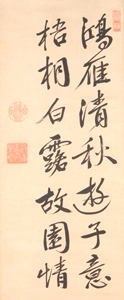 鴻雁清秋遊子意
梧桐白露故園情